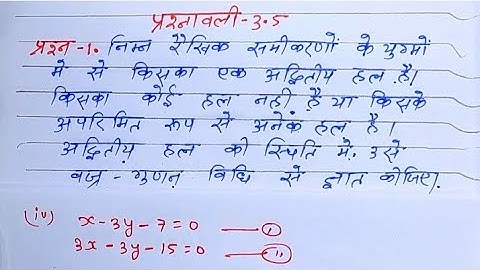 प्रश्नावली-3.5
प्रश्न-1. निम्न रैखिक समीकरणों के युग्मों
मे से किसका एक अद्वितीय हल है।
किसका कोई हल नही है या किसके
अपरिमित रूप से अनेक हल है।
अद्वितीय हल की स्थिति में. उसे
वज्र-गुणन विधि से ज्ञात कीजिए.
(iv) x-3y-7=0 —— (i)
3x-3y-15=0 —— (ii)